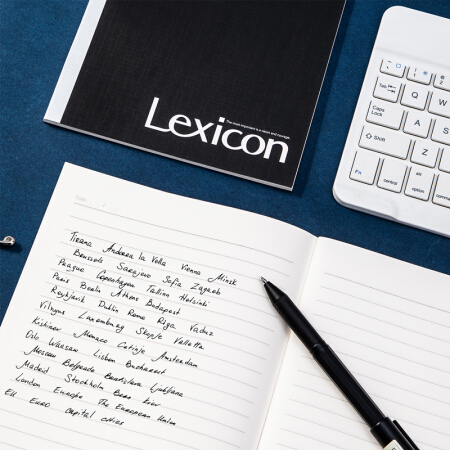 Lexicon
The most important is a vision and courage.
Tab
Caps Lock
Shift
Fn
control
option
command
Q
W
A
S
Z
Date
Tirana Andorra la Vella Vienna Minsk
Brussels Sarajevo Sofia Zagreb
Prague Copenhagen Tallinn Helsinki
Paris Berlin Athens Budapest
Reykjavik Dublin Rome Riga Vaduz
Vilnyus Luxembourg Skopje Valletta
Kishinev Monaco Cetinje Amsterdam
Oslo Warsaw Lisbon Bucharest
Moscow Belgrade Bratislava Ljubljana
Madrid Stockholm Bern Kiev
London Europe The European Union
EU Euro capital cities